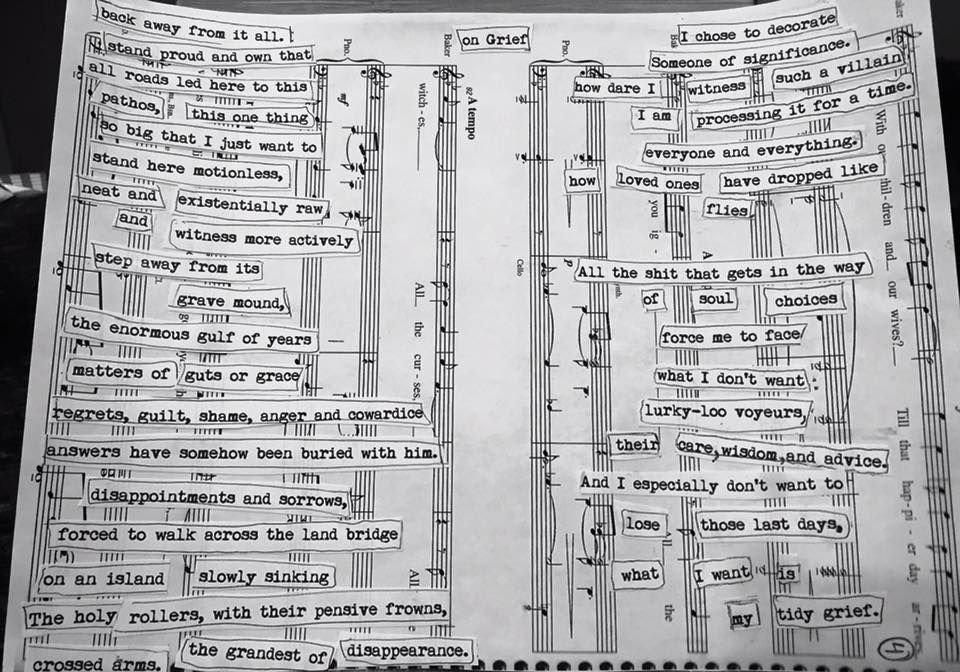 on Grief
back away from it all.
stand proud and own that
all roads led here to this
pathos, this one thing
so big that I just want to
stand here motionless,
neat and existentially raw
and witness more actively
step away from its
grave mound,
the enormous gulf of years
matters of guts or grace
regrets, guilt, shame, anger and cowardice
answers have somehow been buried with him.
disappointments and sorrows,
forced to walk across the land bridge
on an island slowly sinking
The holy rollers, with their pensive frowns,
crossed arms. the grandest of disappearance.
I chose to decorate
Someone of significance.
how dare I witness such a villain
I am processing it for a time.
everyone and everything.
how loved ones have dropped like
flies
All the shit that gets in the way
of soul choices
force me to face
what I don't want
lurky-loo voyeurs,
their care, wisdom, and advice.
And I especially don't want to
lose those last days,
what I want is
my tidy grief.
4
Pno.
mf
Baker
witch - es,
92 A tempo
All the cur - ses,
All
Pno.
Cello
p
you ig -
All the
With our chil - dren and our wives?
Till that hap - pi - er day ar -